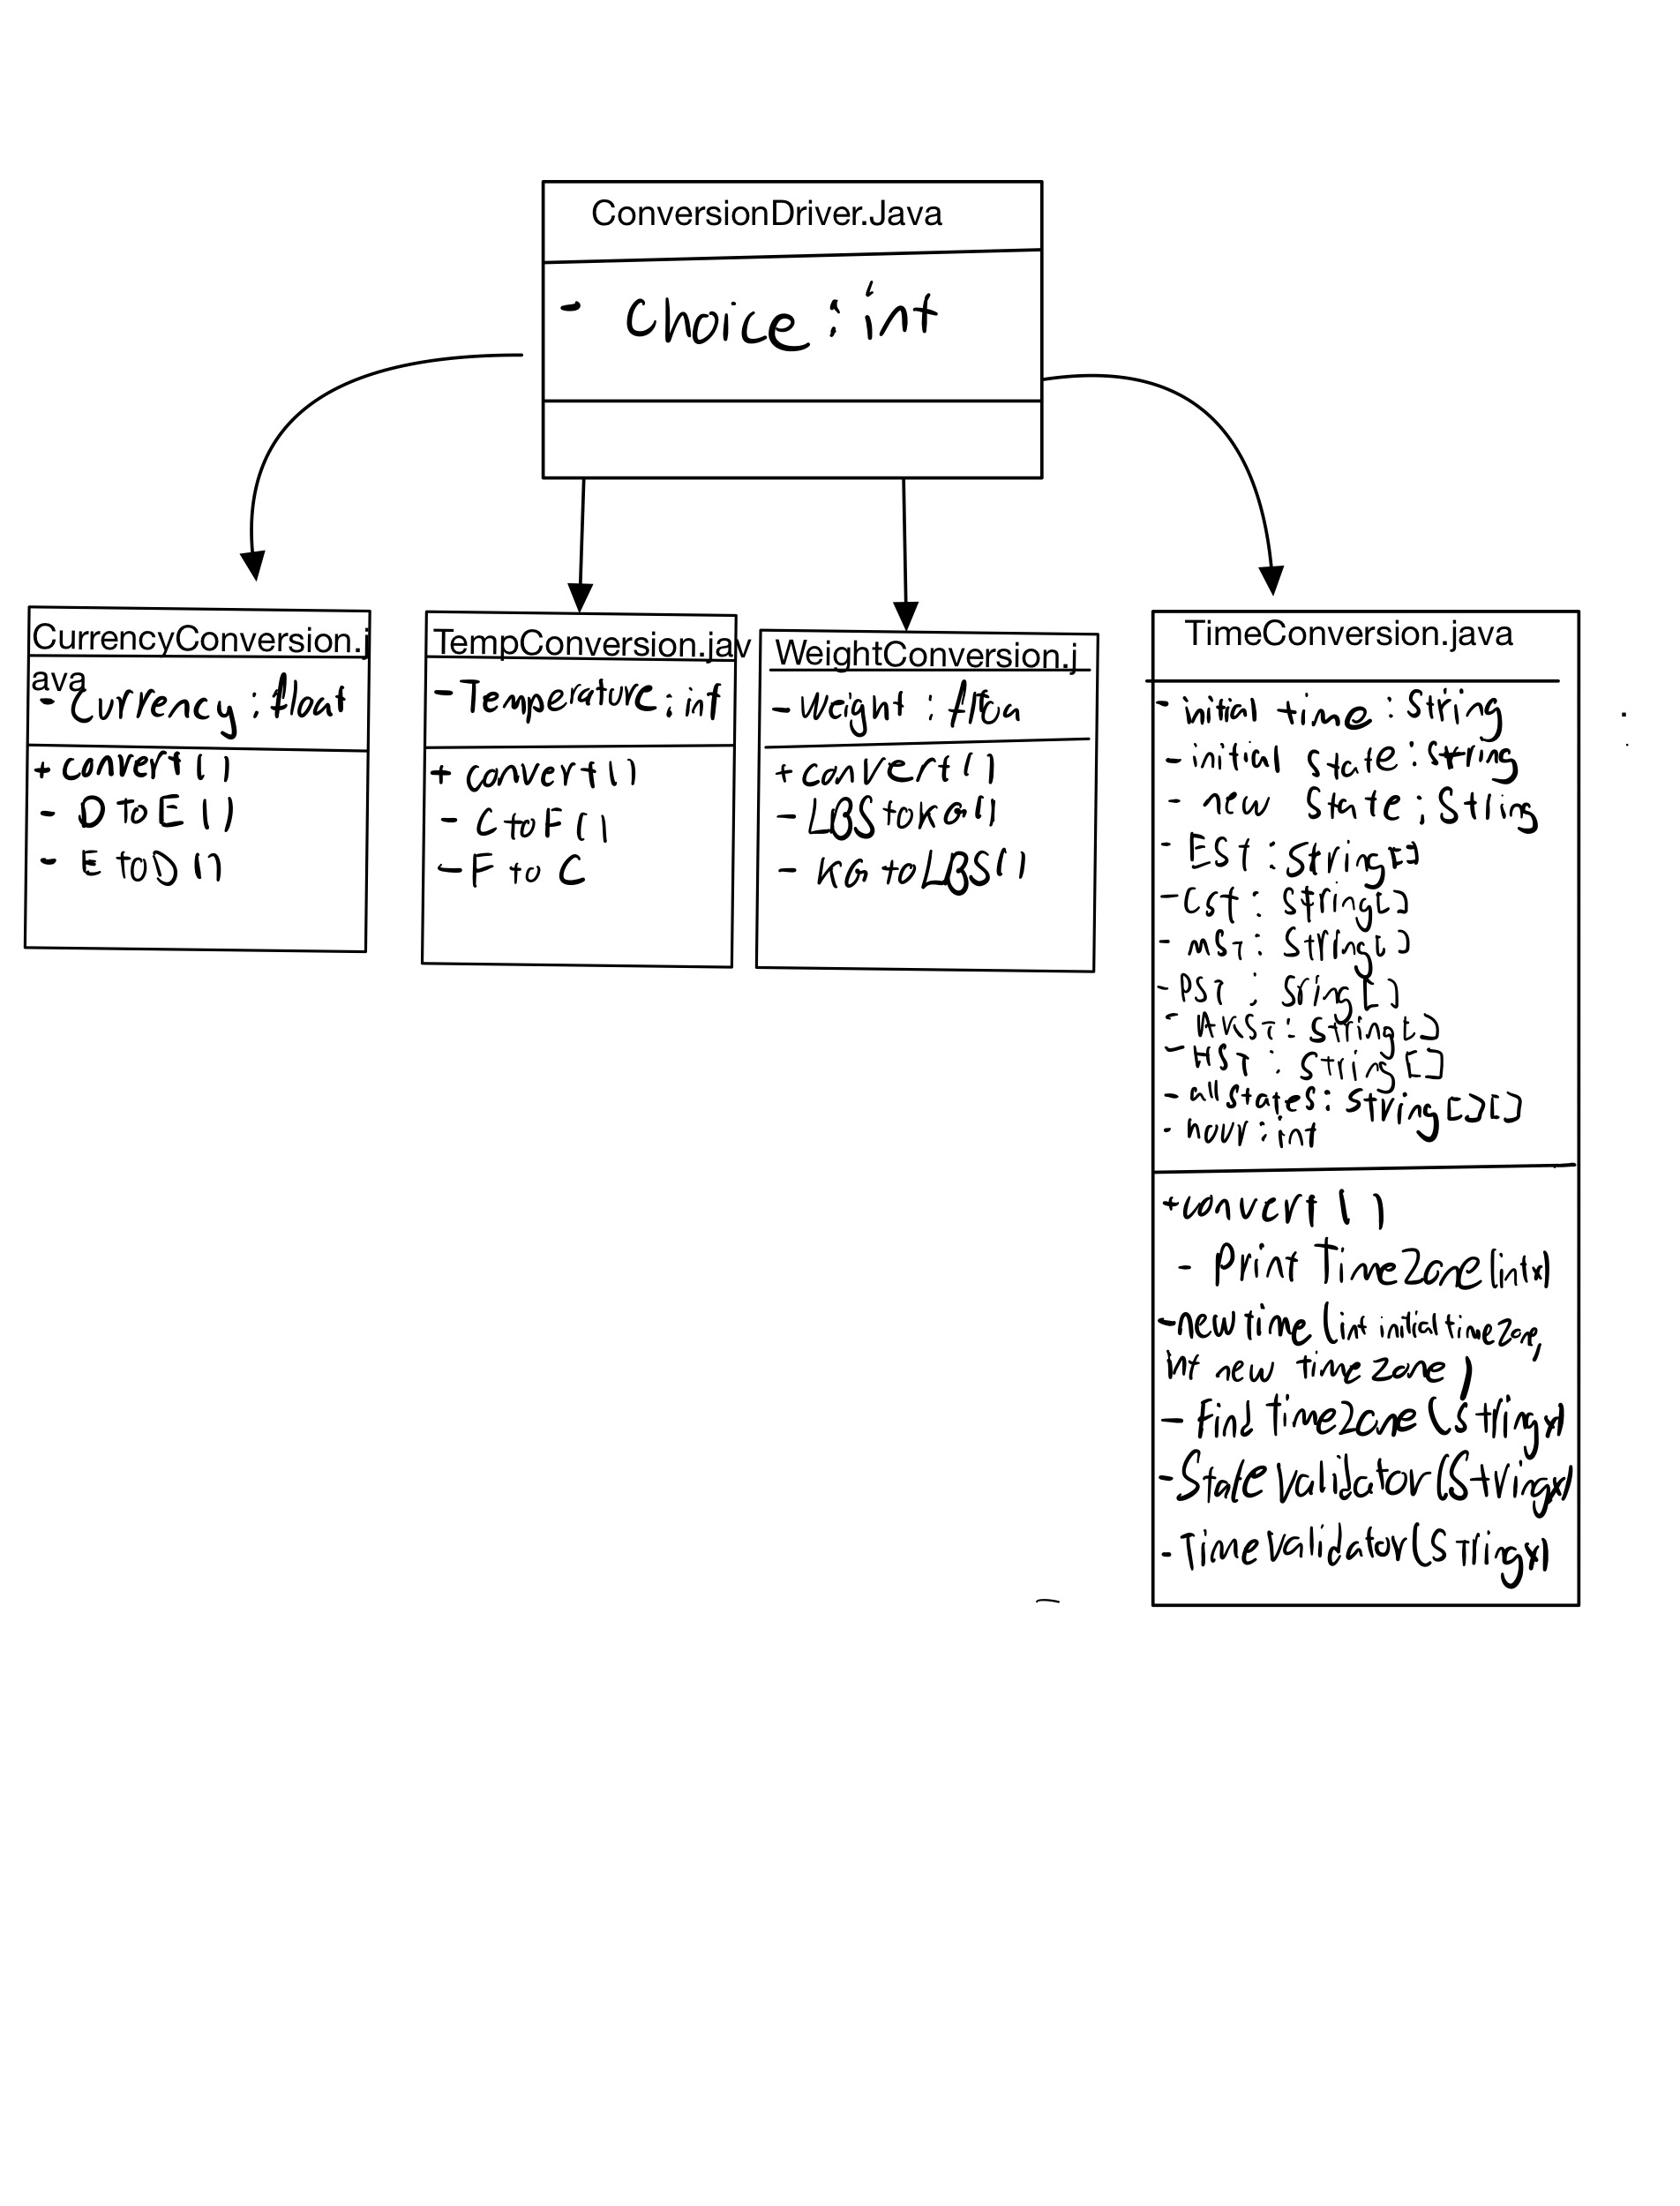 ConversionDriver.Java
- Choice : int
CurrencyConversion.j
ava
- Currency : float
+ convert ( )
- D to E ( )
- E to D ( )
TempConversion.jav
- Temperature : int
+ convert ( )
- C to F ( )
- F to C
WeightConversion.j
- Weight :
+ conVert ( )
- LBS to KG ( )
- KG to LBS ( )
TimeConversion.java
- initial time : String
- initial state : string
- new State : String
- EST : String[]
- CST : String[]
- MST : String[]
- PST : Sring[]
- AKST : String[]
- HST : String[]
- all states : String [][]
- hour : int
+ convert ( )
- print TimeZone (int x)
- new time (int initial time zone,
int new time zone )
- Find timeZone (String x)
- State validator (String x)
- Time validator (String x)